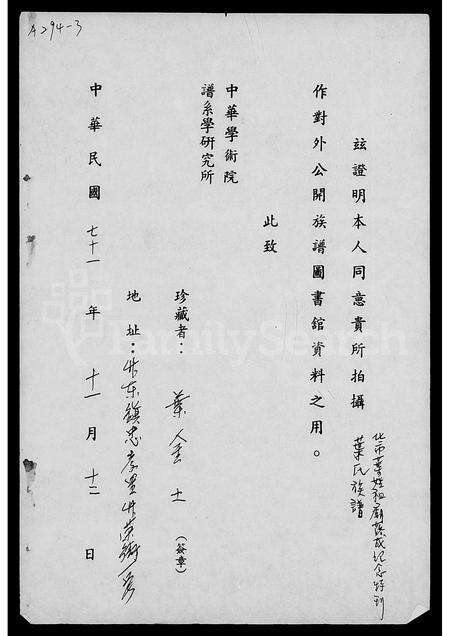 A294-3
玆證明本人同意貴所拍攝
北市葉姓祖廟落成紀念特刊
葉氏族譜
作對外公開族譜圖書館資料之用。
此致
中華學術院
譜系學研究所
珍藏者：葉金土（簽章）
地址：竹东鎮忠孝里竹榮街
中華民國七十一年十一月十二日
FamilySearch